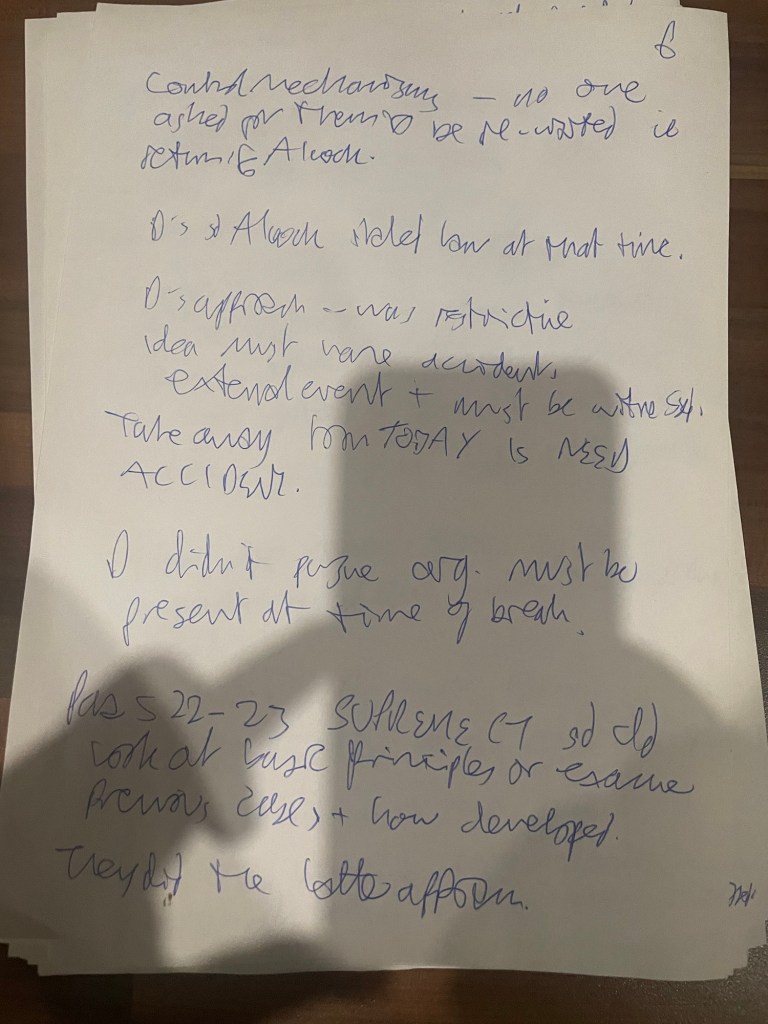 6
Control mechanisms – no one
asked for them to be re-visited ie
return to Alcock.
D's sd Alcock stated law at that time.
D's approach – was restrictive
idea must have accident,
external event + must be witnessed.
Take away from TODAY is NEED
ACCIDENT.
D didn't pursue arg. must be
present at time of breach.
Paras 22-23 SUPREME CT sd cld
look at basic principles or examine
previous cases + how developed.
They did the latter approach.